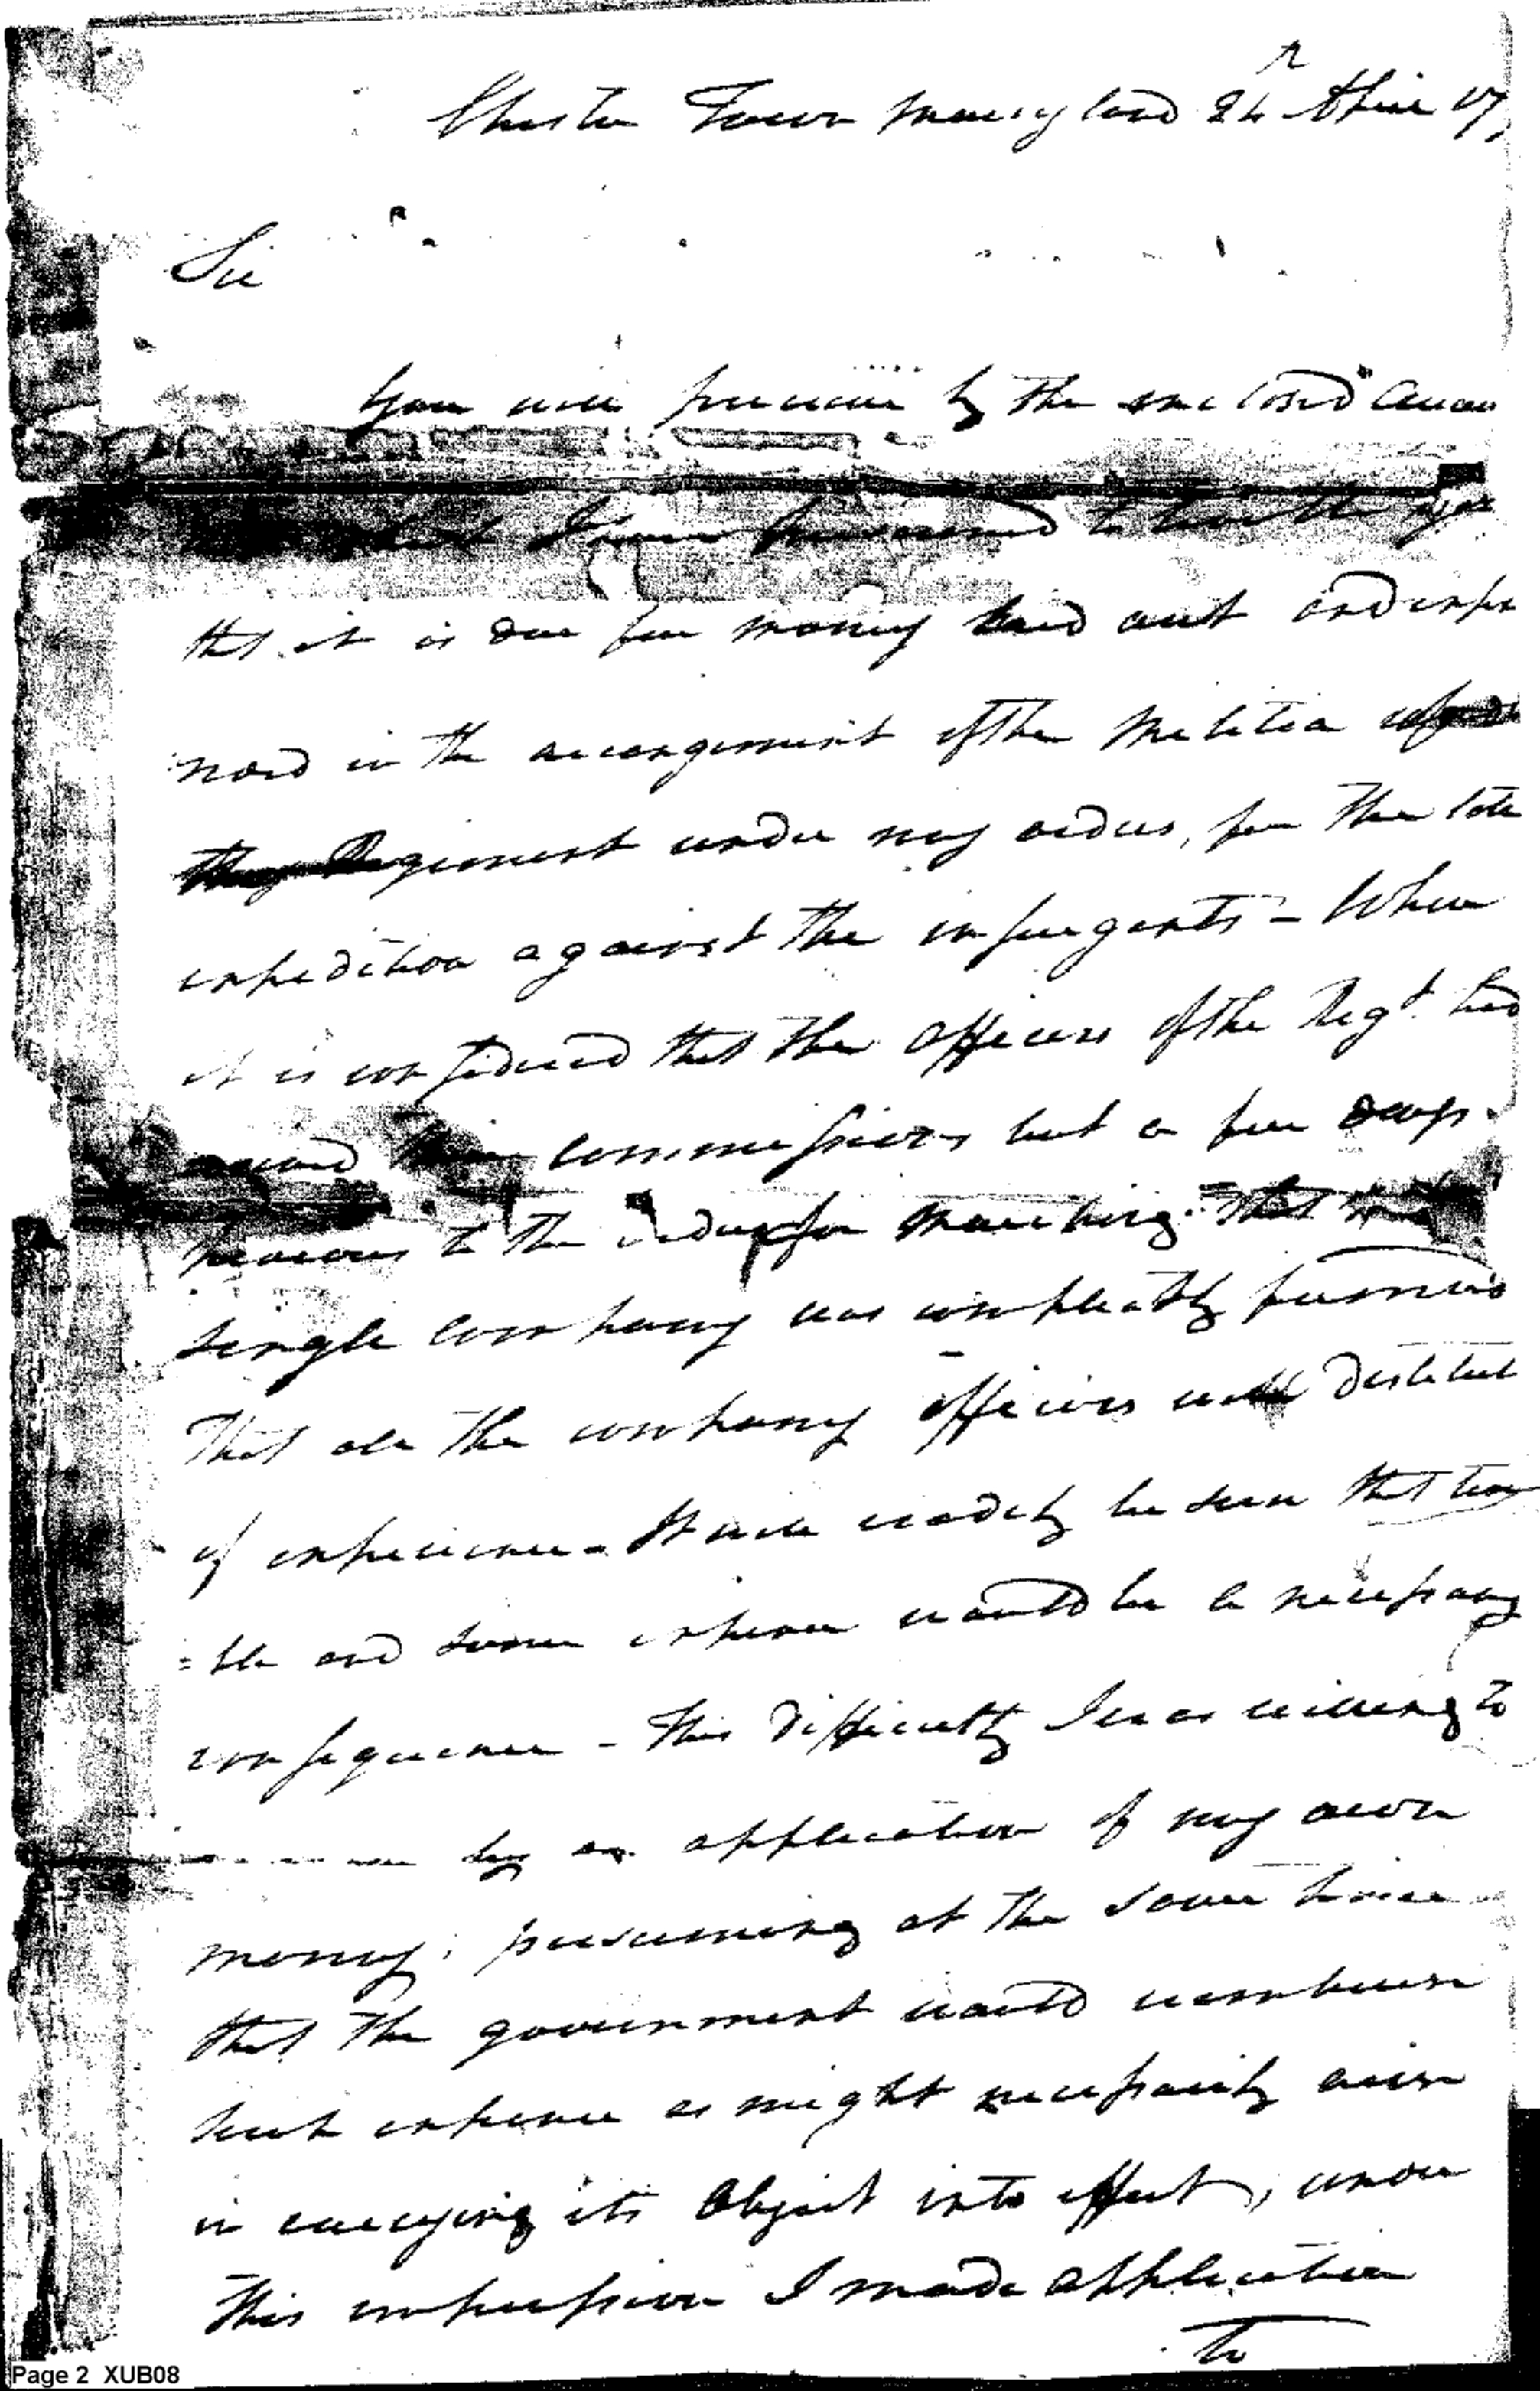 Chester Town Maryland 24 April 17
Sir
You will perceive by the enclosed Accou
that I
tht it is due for money laid out and expe
nced in the arrangement of the Militia
the Regiment under my orders, for the late
expedition against the insurgents - When
it is considered that the Officers of the Regt. had
their commissions but a few days
previous to the order for marching. that
single company was compleatly furnis
That all the company officers were destitut
of experience - It will readily be seen that trou
=ble and some expence would be a necessary
consequence - This difficulty I was willing to
by an application of my own
money, presuming at the same time
that the government would reemburse
such expence as might necessarily arise
in carrying its Object into effect, under
This impression I made application
to
Page 2 XUB08